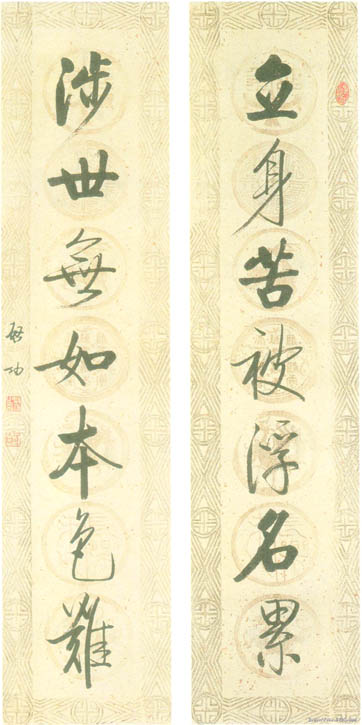 立身苦被浮名累
涉世無如本色難
啓功